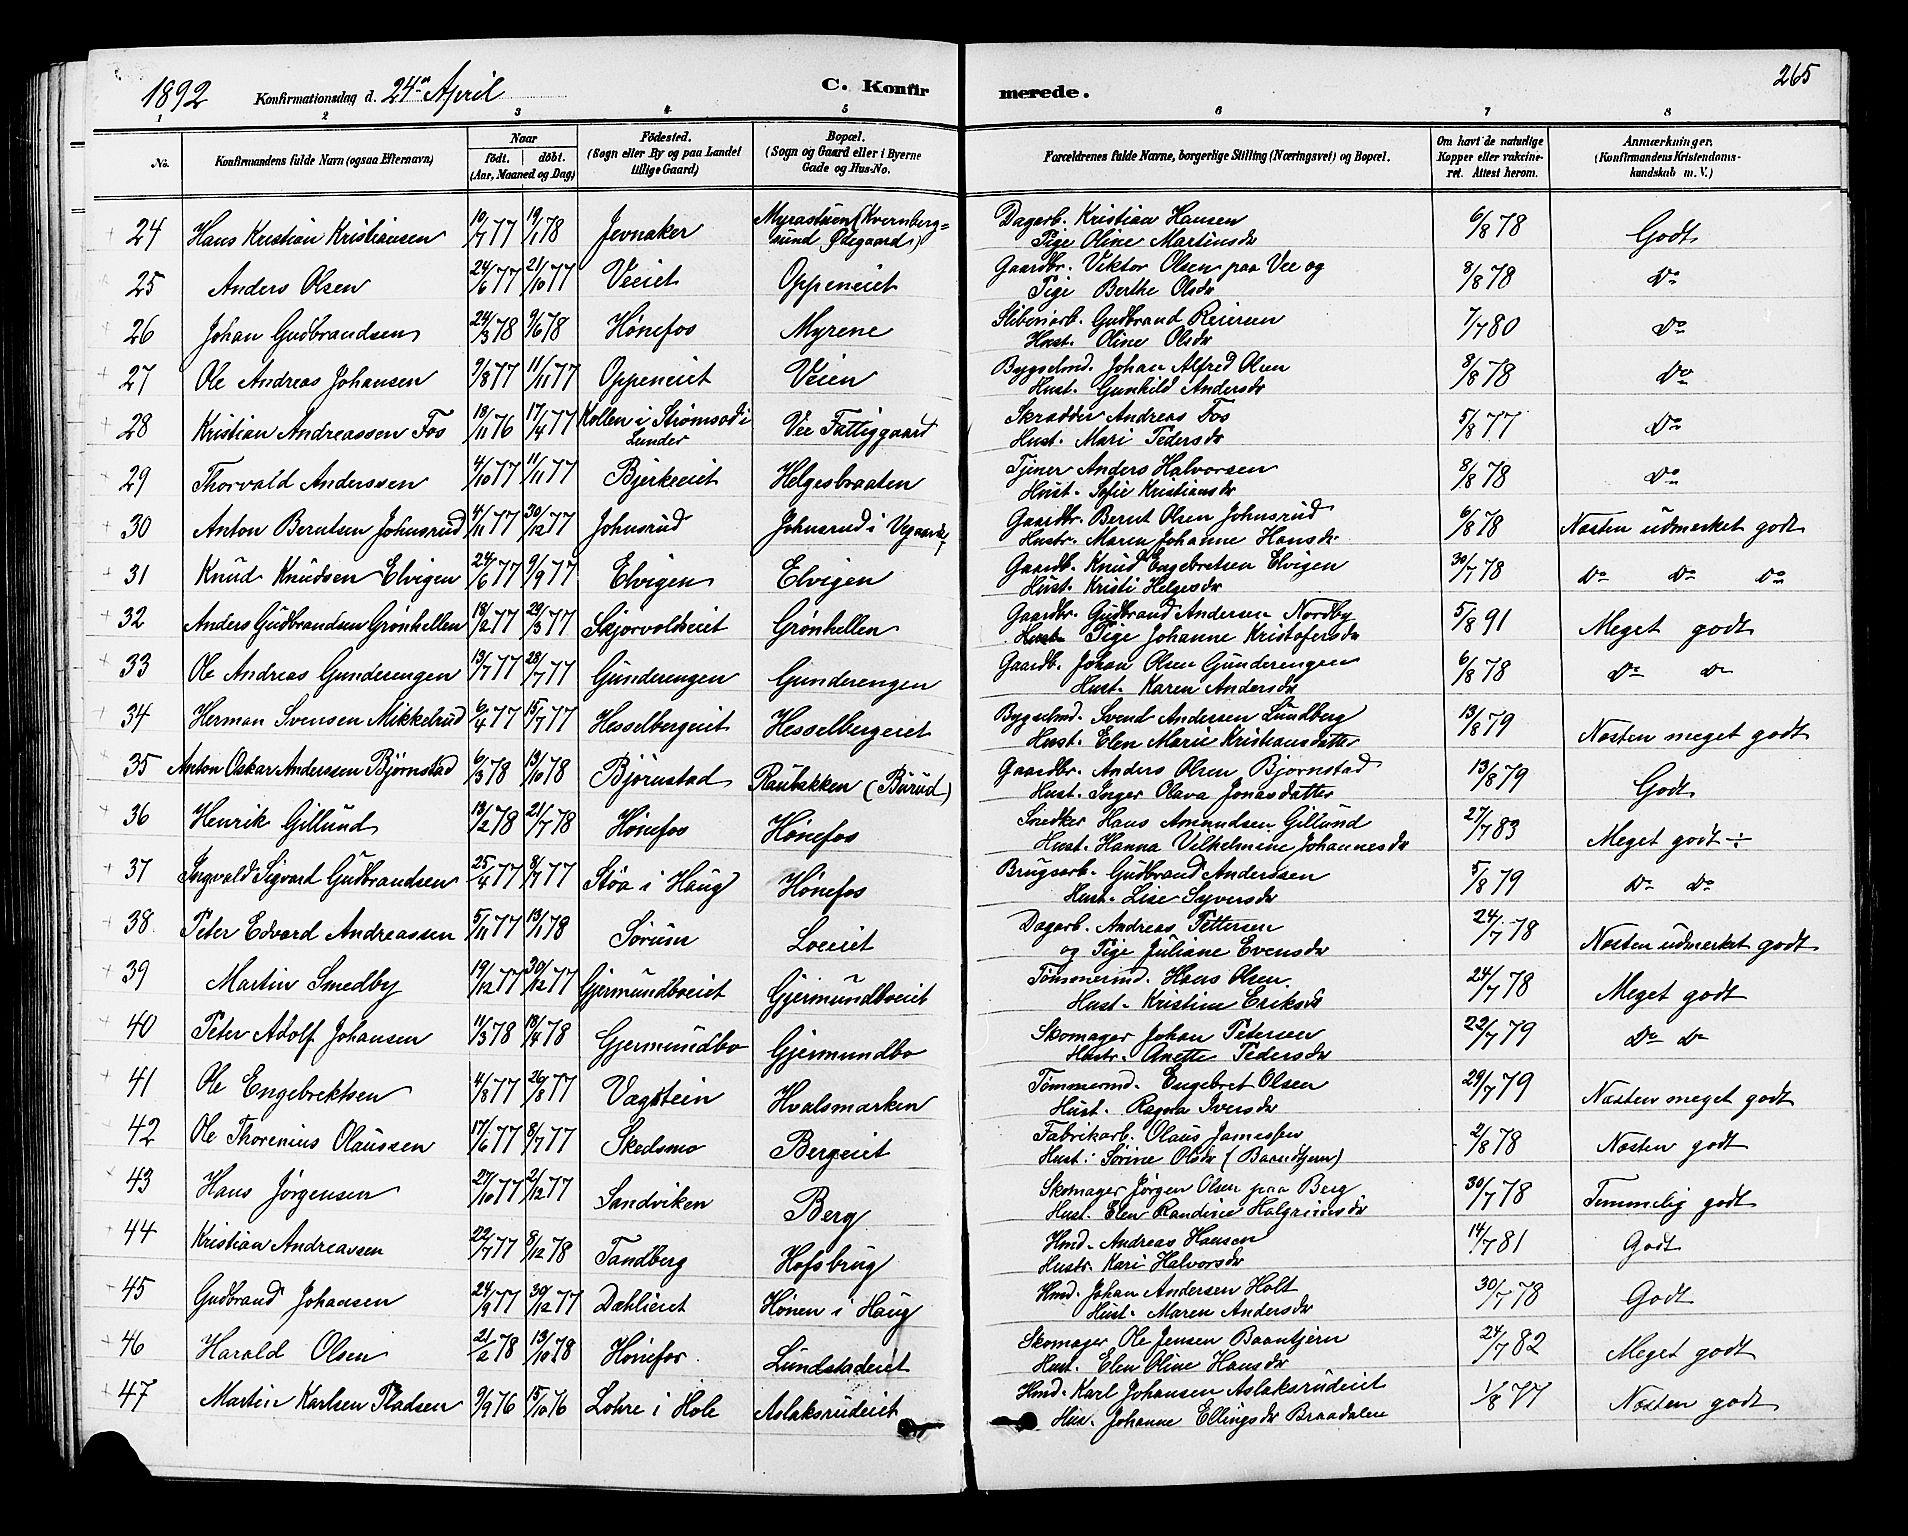 1892 Konfirmationsdag d. 24de April C. Konfirmerede. 265
1 2 3 4 5 6 7 8
No. Konfirmandens fulde Navn (ogsaa Efternavn) Naar født. døbt. (Aar, Maaned og Dag) Fødested. (Sogn eller By og paa Landet tillige Gaard) Bopæl. (Sogn og Gaard eller i Byerne Gade og Hus-No. Forældrenes fulde Navne, borgerlige Stilling (Næringsvei) og Bopæl. Om havt de naturlige Kopper eller vakcineret. Attest herom. Anmærkninger. (Konfirmandens Kristendomskundskab m. V.)
24 Hans Kristian Kristiansen 10/7 77 19/1 78 Jevnaker Myrastuen (Kvernberg= Dagarb. Kristian Hansen 6/8 78 Godt
sund Ødegaard) Pige Oline Martinsdr
25 Anders Olsen 24/6 77 21/10 77 Veeiet Oppeneiet Gaardbr. Viktor Olsen paa Vee og 8/8 78 Do
Pige Berthe Olsdr
26 Johan Gudbrandsen 24/3 78 9/6 78 Hønefos Myrene Sliberiarb. Gudbrand Reiersen 7/7 80 Do
Hust. Oline Olsdr
27 Ole Andreas Johansen 9/8 77 11/11 77 Oppeneiet Veien Bygselmd. Johan Alfred Olsen 8/8 78 Do
Hust. Gunhild Andersdr
28 Kristian Andreassen Fos 18/11 76 17/4 77 Kollen i Strømsod i Vee Fattiggaard Skrædder Andreas Fos 5/8 77 Do
Lunder Hust. Mari Pedersdr
29 Thorvald Anderssen 4/10 77 11/11 77 Bjerkeeiet Helgesbraaten Tjener Anders Halvorsen 8/8 78 Do
Hust. Sofie Kristiansdr
30 Anton Berntsen Johnsrud 4/11 77 30/12 77 Johnsrud Johnsrud i Vegaards Gaardbr. Bernt Olsen Johnsrud 6/8 78 Næsten udmerket godt
Hustr. Maren Johanne Hansdr.
31 Knud Knudsen Elvigen 24/6 77 9/9 77 Elvigen Elvigen Gaardb. Knud Engebretsen Elvigen 30/7 78 Do Do Do
Hust. Kristi Helgesdr
32 Anders Gudbrandsen Grønhellen 18/2 77 29/3 77 Skjorvoldseiet Grønhellen Gaardbr. Gudbrand Andersen Nordby 5/8 91 Meget godt
Hust. Pige Johanne Kristofersdr
33 Ole Andreas Gunderengen 13/7 77 28/7 77 Gunderengen Gunderengen Gaardb. Johan Olsen Gunderengen 6/8 78 Do Do
Hust. Karen Andersdr
34 Herman Svensen Mikkelrud 6/4 77 15/7 77 Hesselbergeiet Hesselbergeiet Bygselmd. Svend Andersen Lundberg 13/8 79 Næsten meget godt
Hust. Elen Marie Kristiansdatter
35 Anton Oskar Anderssen Bjørnstad 6/3 78 13/10 78 Bjørnstad Raubakken (Burud) Gaardbr. Anders Olsen Bjornstad 13/8 79 Godt
Hust. Inger Olava Jonasdatter
36 Henrik Gillund 13/2 78 21/7 78 Hønefos Hønefos Snedker Hans Amundsen Gillund 27/7 83 Meget godt ÷
Hust. Hanna Vilhelmine Johannesdr
37 Ingvald Sigvard Gudbrandsen 25/4 77 8/7 77 Støa i Haug Hønefos Brugsarb. Gudbrand Anderssen 5/8 79 Do Do
Hust. Lise Syversdr
38 Peter Edvard Andreassen 5/11 77 13/1 78 Sørum Loeiet Dagarb. Andreas Pettersen 24/7 78 Næsten udmerket godt
og Pige Juliane Evensdr
39 Martin Smedby 19/12 77 30/12 77 Gjermundboeiet Gjermundboeiet Tømmermd. Hans Olsen 24/7 78 Meget godt
Hust. Kristine Eriksd
40 Peter Adolf Johansen 11/3 78 18/4 78 Gjermundbo Gjermundbo Skomager Johan Petersen 22/7 79 Do Do
Hustr. Anette Pedersdr
41 Ole Engebrektsen 4/8 77 26/8 77 Vagstein Hvalsmarken Tømmermd. Engebret Olsen 29/7 79 Næsten meget godt
Hust. Ragna Iversdr
42 Ole Thorenius Olaussen 17/6 77 8/7 77 Skedsmo Bergeiet Fabrikarb. Olaus Jamessen 2/8 78 Næsten godt
Hust: Sørine Olsdr (Baandtjern)
43 Hans Jørgensen 27/10 77 2/12 77 Sandviken Berg Skomager Jørgen Olsen paa Berg 30/7 78 Temmelig godt
Hust. Elen Randine Halgrimsdr
44 Kristian Andreassen 22/7 77 8/12 78 Tandberg Hofsbrug Hmd. Andreas Hansen 14/7 81 Godt
Hustr. Kari Halvorsdr
45 Gudbrand Johansen 24/9 77 30/12 77 Dæhlieiet Hønen i Haug Hmd. Johan Andersen Holt 30/7 78 Godt
Hust. Maren Andersdr
46 Harald Olsen 21/2 78 13/10 78 Hønefos. Lundstadeiet Skomager Ole Jensen Baantjern 24/7 82 Meget godt
Hust. Elen Oline Hansdr
47 Martin Karlsen Pladsen 9/9 76 15/10 76 Lohre i Hole Aslaksrudeiet Hmd. Karl Johansen Aslaksrudeiet 1/8 77 Næsten godt
Hus. Johanne Ellingsdr Braadalen